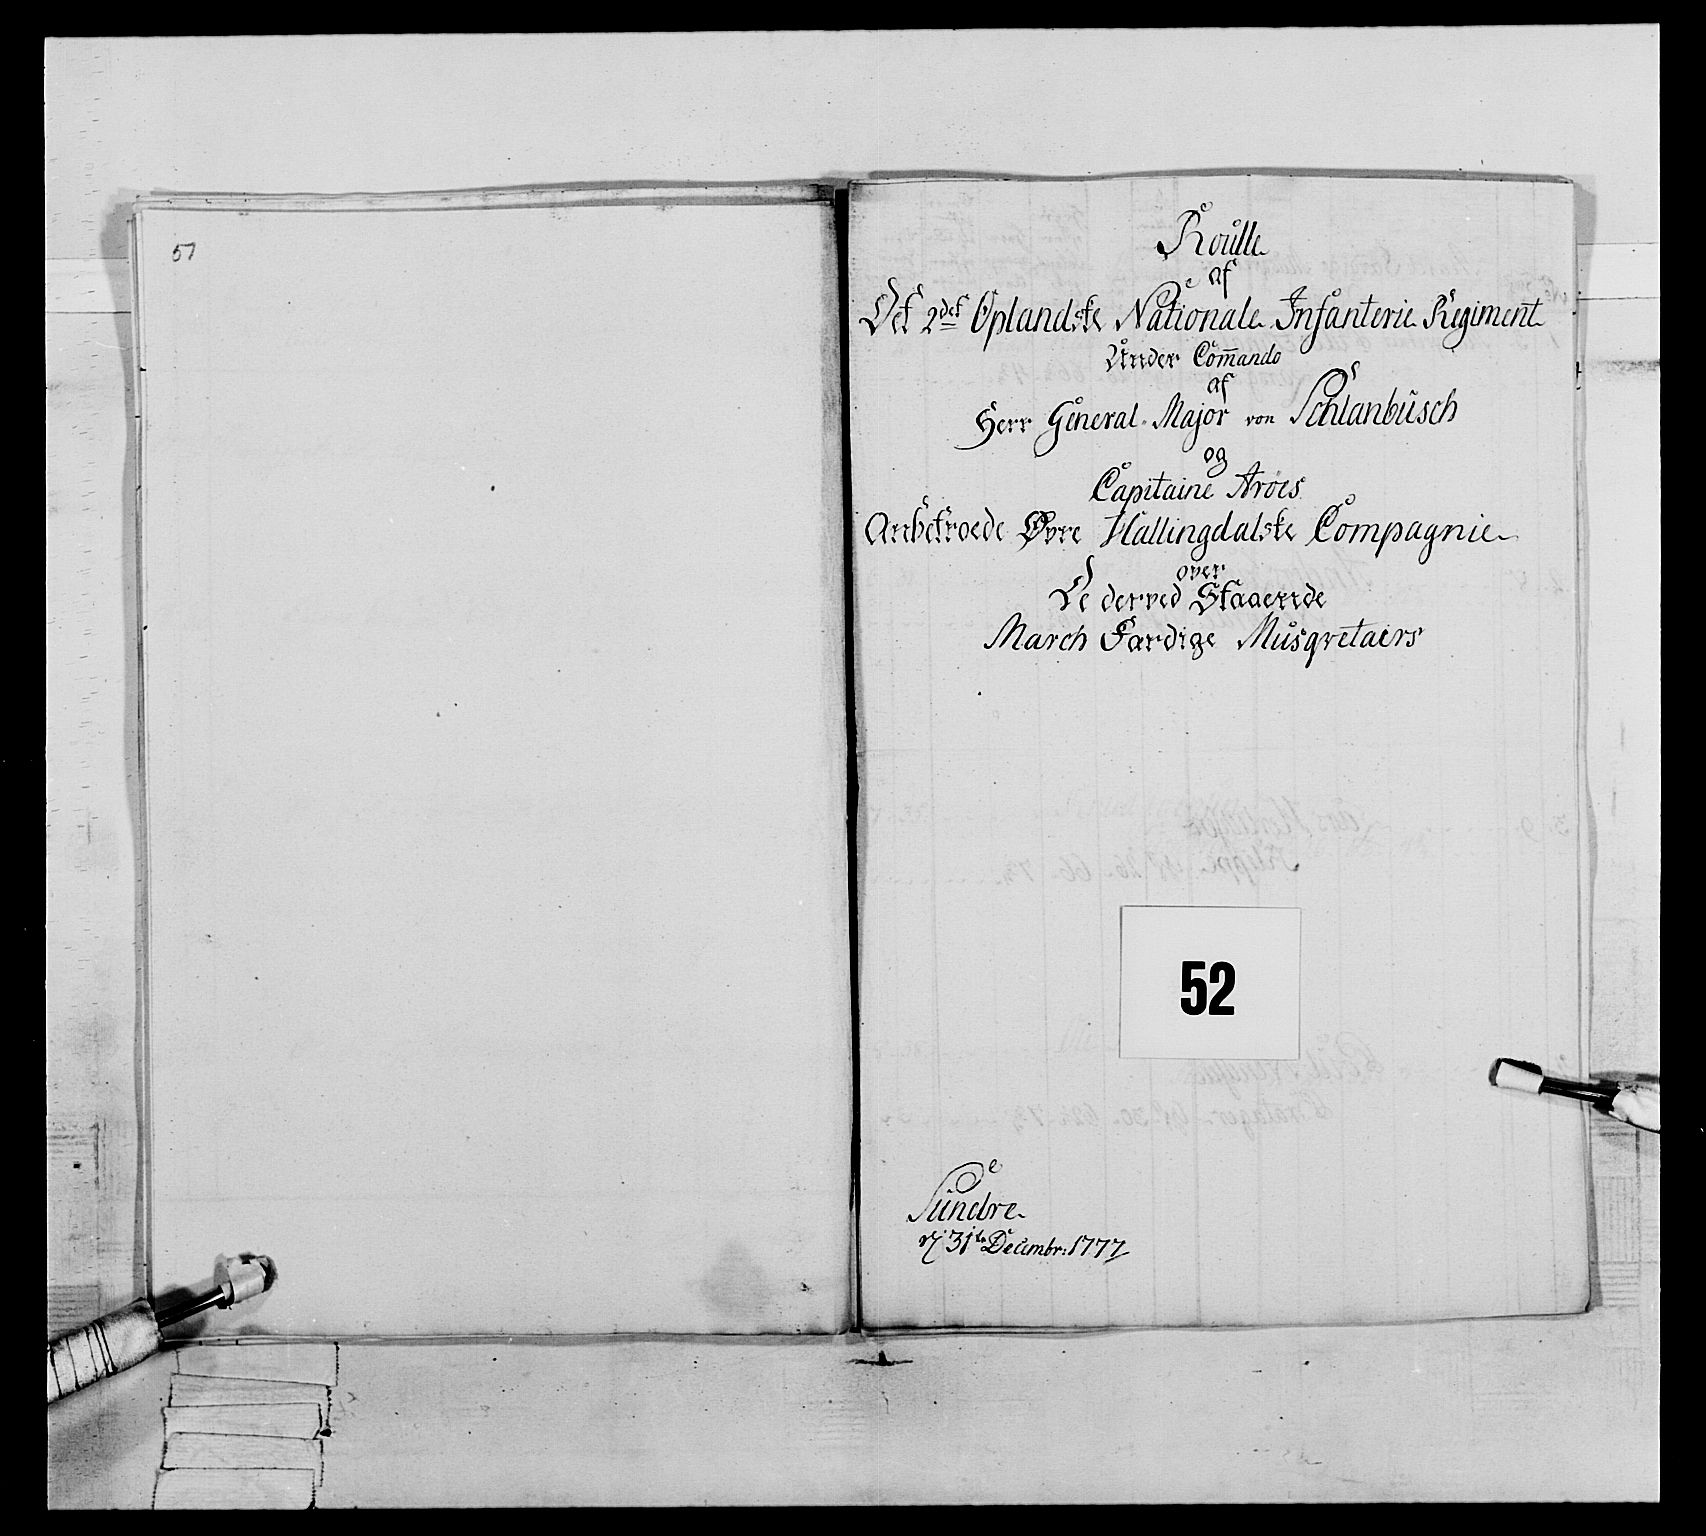 51
Roulle
af
Det 2det Oplandske Nationale Infanterie Regiment
Under Com̄ando
af
Herr General-Major von Schlanbusch
og
Capitaine Arøes
Anbetroede Øvre Hallingdalske Compagnie
over
De derved Staaende
March Færdige Musqvetaers
52
Sundre
31te Decembr: 1777